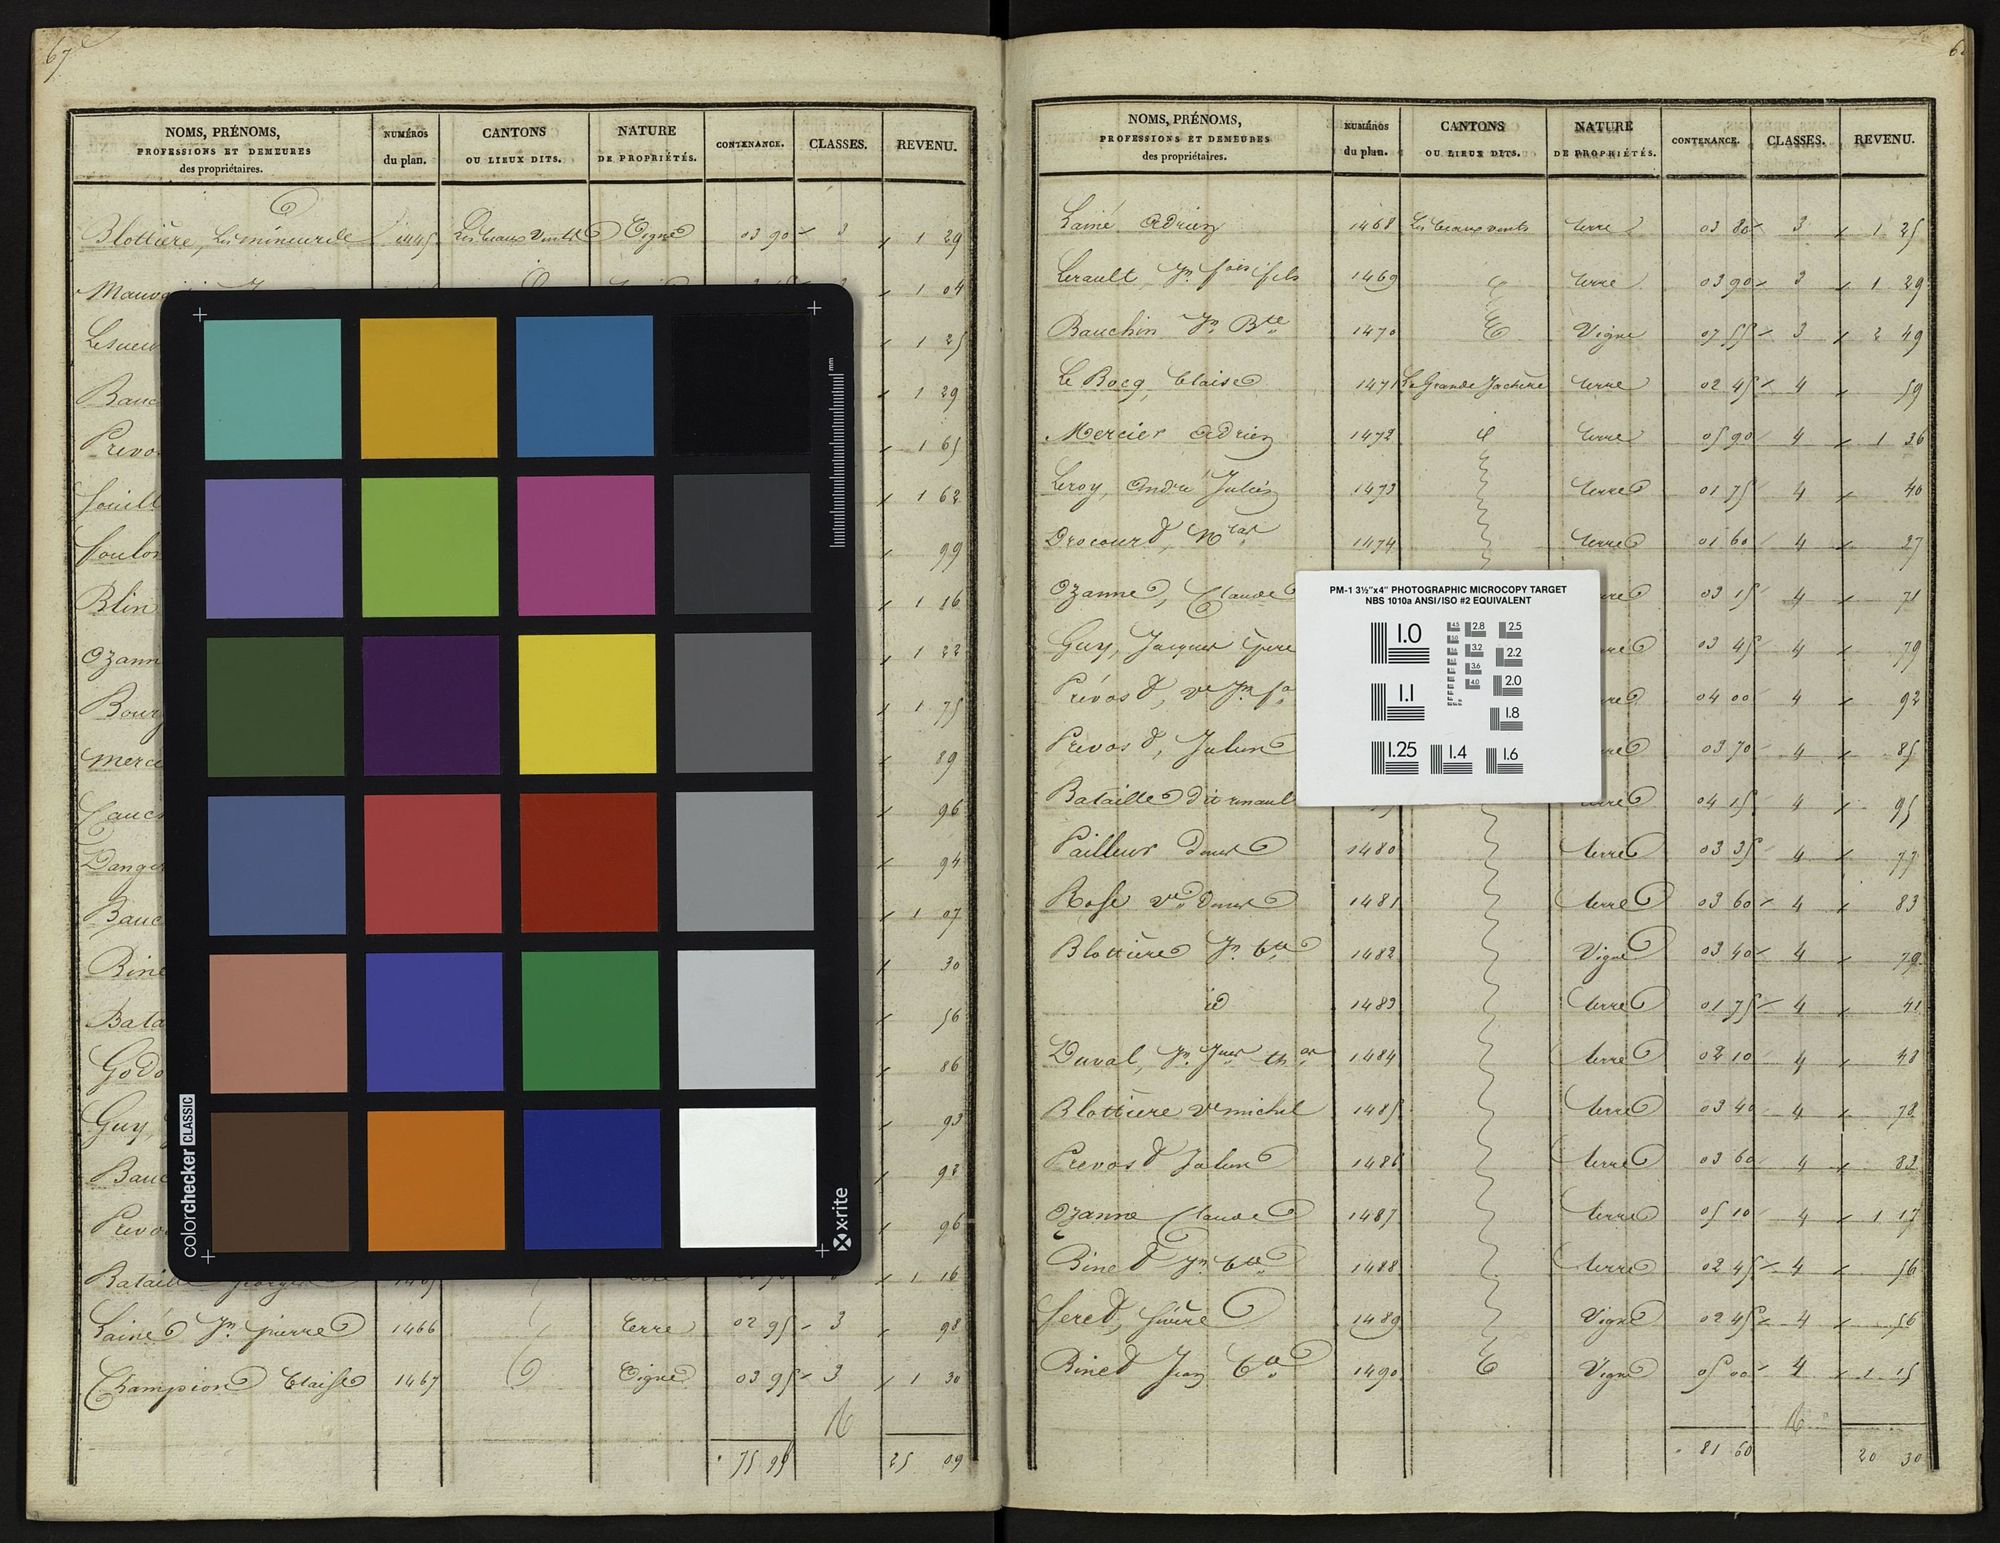 67
NOMS, PRÉNOMS,
PROFESSIONS ET DEMEURES
des propriétaires.
NUMÉROS
du plan.
CANTONS
OU LIEUX DITS.
NATURE
DE PROPRIÉTÉS.
CONTENANCE.
CLASSES.
REVENU.
Blottière, Les mineurs de 1445 Les beaux Vents Vigne 03 90 3 1 29
Mauv 1 04
Lesueu 1 25
Bauc 1 29
Prevo 1 65
fouill 1 62
foulon 99
Blin 1 16
Ozann 1 22
Bourg 1 75
Merci 89
Cauch 96
Danger 94
Bauc 1 07
Bine 30
Bata 56
Godo 86
Guy, 93
Bauc 92
Prevo 96
Bataille Georges 1465 1 16
Lainé Jn. pierre 1466 terre 02 95 3 98
Champion blaise 1467 Vigne 03 95 3 1 30
75 95 25 09
colorchecker CLASSIC
x-rite
mm
NOMS, PRÉNOMS,
PROFESSIONS ET DEMEURES
des propriétaires.
NUMÉROS
du plan.
CANTONS
OU LIEUX DITS.
NATURE
DE PROPRIÉTÉS.
CONTENANCE.
CLASSES.
REVENU.
Lainé Adrien 1468 Les beaux vents terre 03 80 3 1 25
Lerault, Jn. fois fils 1469 terre 03 90 3 1 29
Bauchin Jn. Bte 1470 Vigne 07 55 3 2 49
Le Bocq, blaise 1471 La Grande Jachère terre 02 45 4 59
Mercier Adrien 1472 terre 05 90 4 1 36
Leroy, André Julien 1473 terre 01 75 4 40
Drocourt, Nlas 1474 terre 01 60 4 37
Ozanne, Claude 03 15 4 71
Guy, Jacques père 03 45 4 79
Prévost, ve Jn. fs 04 00 4 92
Prevost, Julien 03 70 4 85
Bataille dit renault 04 15 4 95
Pailleur 1480 terre 03 35 4 77
Rose ve 1481 terre 03 60 4 83
Blottière Jn. bte 1482 Vigne 03 40 4 79
id 1483 terre 01 75 4 41
Duval, Jn. Jques 1484 terre 02 10 4 48
Blottiere ve michel 1485 terre 03 40 4 78
Prevost Julien 1486 terre 03 60 4 83
Ozanne Claude 1487 terre 05 10 4 1 17
Binet Jn. bte 1488 terre 02 45 4 56
feret, 1489 Vigne 02 45 4 56
Binet Jean Bte 1490 Vigne 05 00 4 1 15
81 60 20 30
PM-1 3½"x4" PHOTOGRAPHIC MICROCOPY TARGET
NBS 1010a ANSI/ISO #2 EQUIVALENT
1.0
4.5
2.8
2.5
5.0
3.2
2.2
3.6
4.0
2.0
1.1
1.8
1.25
1.4
1.6